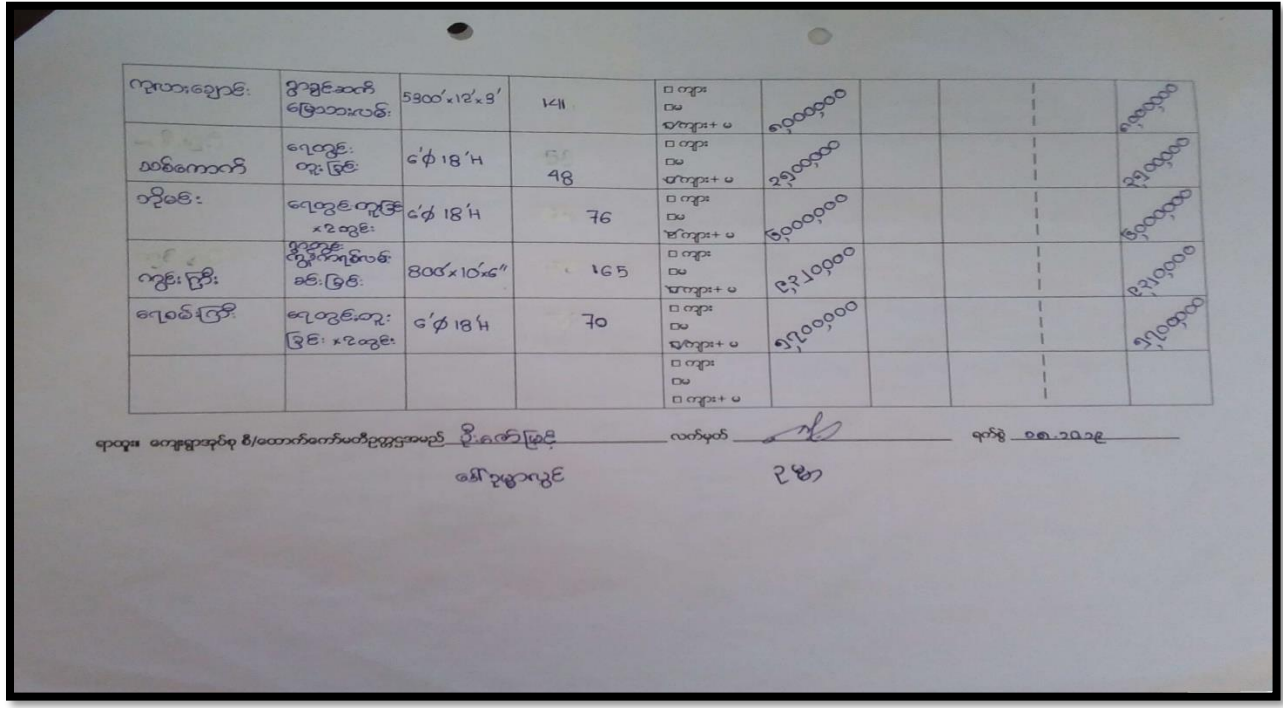 ကုလားချောင်း
ရွာချင်းဆက်
မြေသားလမ်း
5300'×12'×3'
141
□ ကျား
□ မ
□ ကျား + မ
၅,၀၀၀,၀၀၀
သစ်ကောက်
ရေတွင်း
တူးခြင်း
6'φ 18'H
48
□ ကျား
□ မ
□ ကျား + မ
၂,၅၀၀,၀၀၀
၂,၅၀၀,၀၀၀
ဘိုမင်း
ရေတွင်းတူးခြင်း
×2တွင်း
6'φ 18'H
76
□ ကျား
□ မ
□ ကျား + မ
၆,၀၀၀,၀၀၀
၆,၀၀၀,၀၀၀
ကျွဲကြီး
ရွာတွင်း
ကွန်ကရစ်လမ်း
ခင်းခြင်း
800'×10'×6"
165
□ ကျား
□ မ
□ ကျား + မ
၉,၃၂၀,၀၀၀
၉,၃၂၀,၀၀၀
ရေစမ်းကြီး
ရေတွင်းတူး
ခြင်း ×2တွင်း
6'φ 18'H
70
□ ကျား
□ မ
□ ကျား + မ
၅,၇၀၀,၀၀၀
၅,၇၀၀,၀၀၀
□ ကျား
□ မ
□ ကျား + မ
ရာထူး။ ကျေးရွာအုပ်စု စီ/ထောက်ကော်မတီဥက္ကဋ္ဌအမည် ဦးကျော်မြင့် လက်မှတ် ရက်စွဲ
ဒေါ်ဥမ္မာလွင် ဥမ္မာ